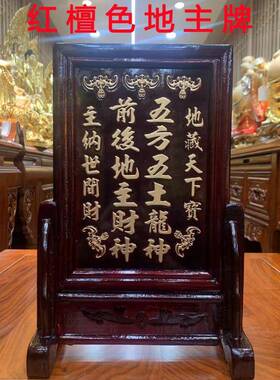 红檀色地主牌
地藏天下寳
五方五土龍神
前後地主財神
主納世間財